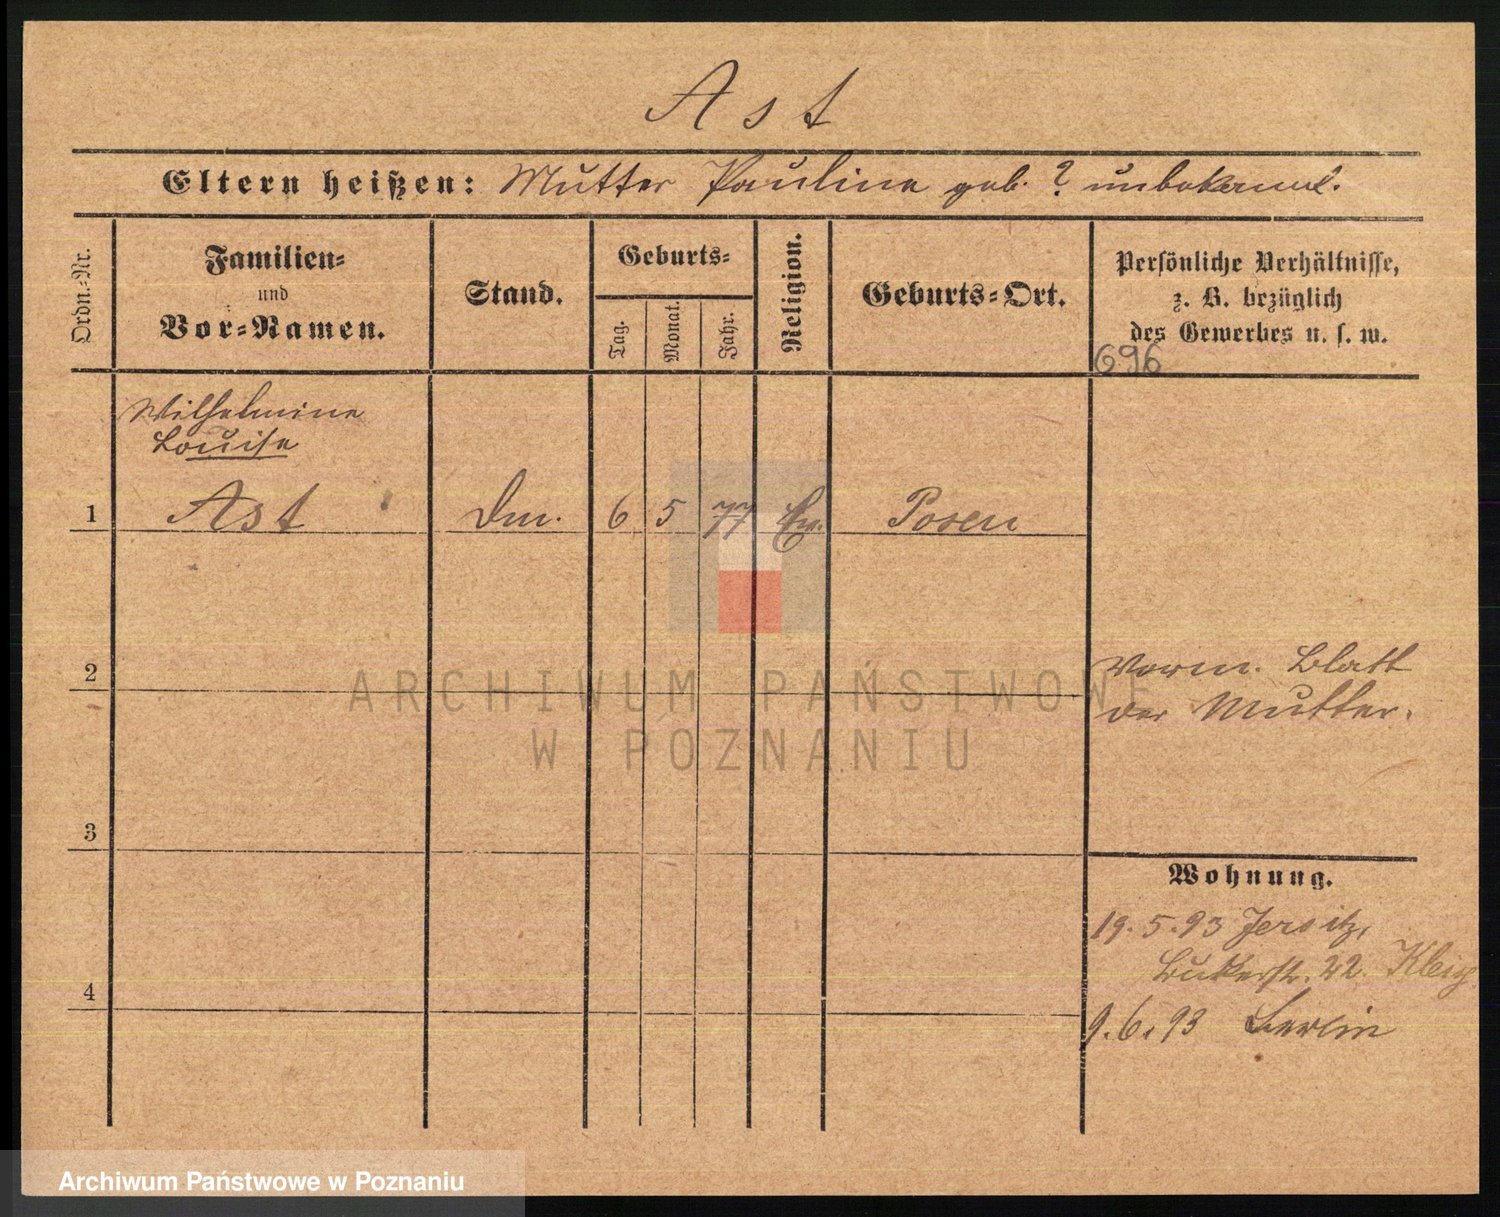 Ast
Eltern heißen: Mutter Pauline geb. ? unbekannt.
Ordn.-Nr.
Familien-
und
Vor-Namen.
Stand.
Geburts-
Tag.
Monat.
Jahr.
Religion.
Geburts-Ort.
Persönliche Verhältnisse,
z. B. bezüglich
des Gewerbes u. s. w.
696
Wilhelmine
Louise
1 Ast Dm. 6 5 77 Ev. Posen
2
Verm. Blatt
der Mutter.
ARCHIWUM PAŃSTWOWE
W POZNANIU
3
Wohnung.
19.5.93 Jersitz,
Bukerstr. 22.
4
9.6.93 Berlin
Archiwum Państwowe w Poznaniu